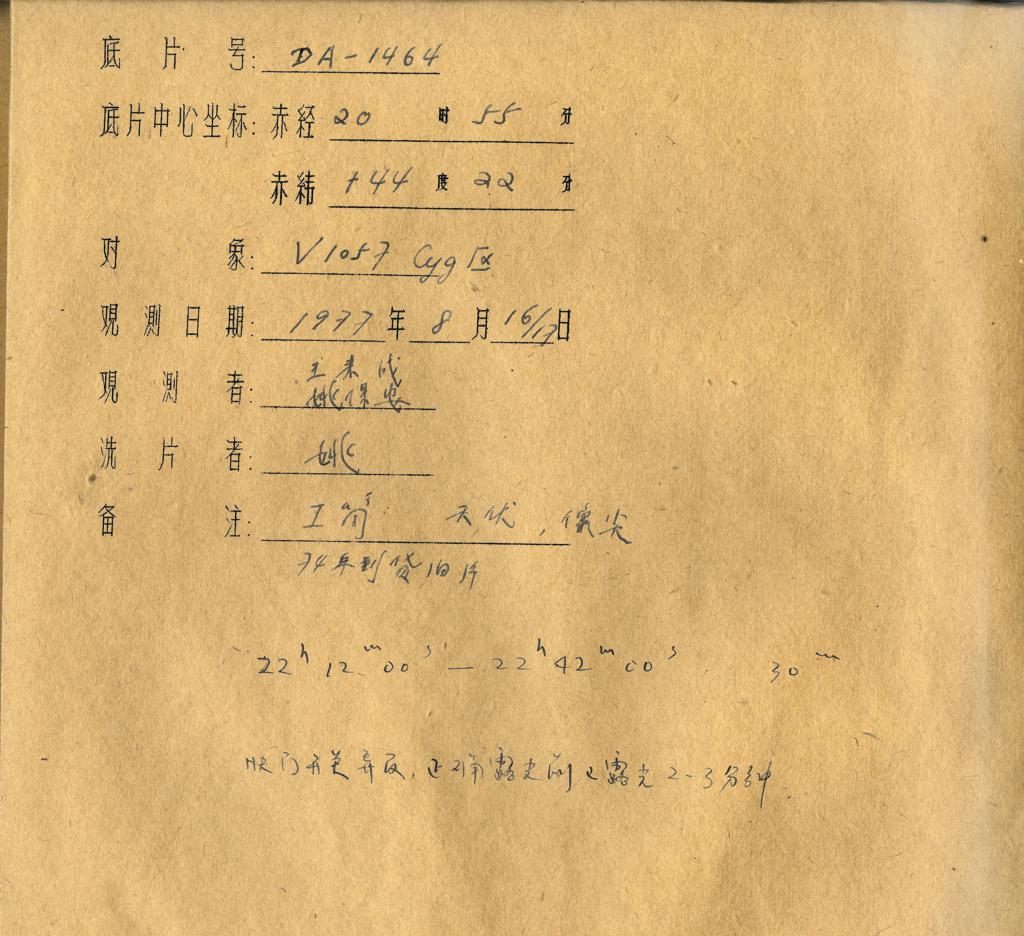 底片号: DA-1464
底片中心坐标: 赤经 20 时 55 分
赤纬 +44 度 22 分
对象: V1057 Cyg 区
观测日期: 1977 年 8 月 16/17 日
观测者: 王来成
姚保安
洗片者: 姚
备注: 天优, 像尖
74年到货旧片
22ʰ12ᵐ00ˢ — 22ʰ42ᵐ00ˢ 30ᵐ
快门开关弄反, 正确露光前已露光 2-3分钟.